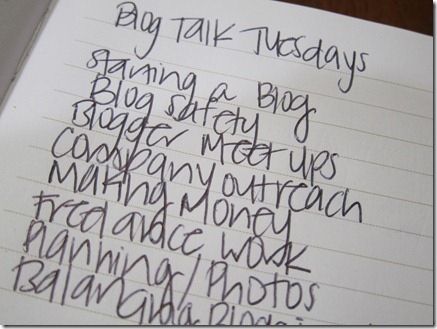 Blog Talk Tuesdays
Starting a Blog
Blog Safety
Blogger Meet ups
Company outreach
Making Money
Freelance work
Planning/Photos
Balancing